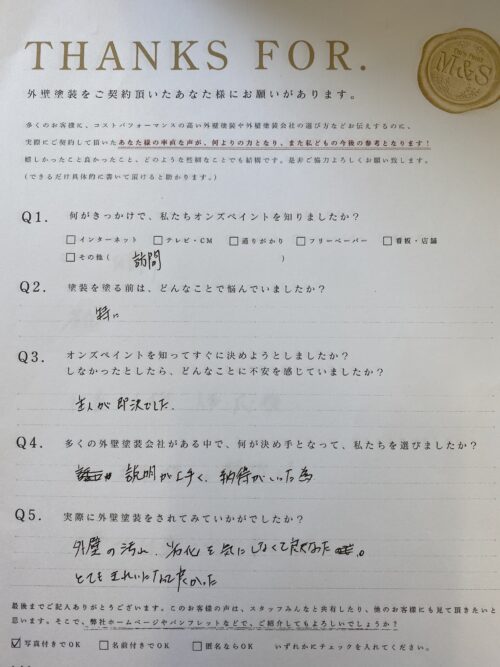 THANKS FOR.
M&S
外壁塗装をご契約頂いたあなた様にお願いがあります。
多くのお客様に、コストパフォーマンスの高い外壁塗装や外壁塗装会社の選び方などお伝えするのに、
実際にご契約して頂いたあなた様の率直な声が、何よりの力となり、また私どもの今後の参考となります!
嬉しかったこと良かったこと、どのような些細なことでも結構です。是非ご協力よろしくお願い致します。
(できるだけ具体的に書いて頂けると助かります。)
Q1. 何がきっかけで、私たちオンズペイントを知りましたか?
インターネット テレビ・CM 通りがかり フリーペーパー 看板・店舗
その他( 訪問 )
Q2. 塗装を塗る前は、どんなことで悩んでいましたか?
特に
Q3. オンズペイントを知ってすぐに決めようとしましたか?
しなかったとしたら、どんなことに不安を感じていましたか?
主人が即決でした.
Q4. 多くの外壁塗装会社がある中で、何が決め手となって、私たちを選びましたか?
説明が上手く、納得がいった為
Q5. 実際に外壁塗装をされてみていかがでしたか?
外壁の汚れ、劣化を気にしなくて良くなった。
とてもきれいになって良かった
最後までご記入ありがとうございます。このお客様の声は、スタッフみんなと共有したり、他のお客様にも見て頂きたいと
思います。そこで、弊社ホームページやパンフレットなどで、ご紹介してもよろしいでしょうか?
写真付きでOK 名前付きでOK 匿名ならOK いずれかにチェックを入れてください。